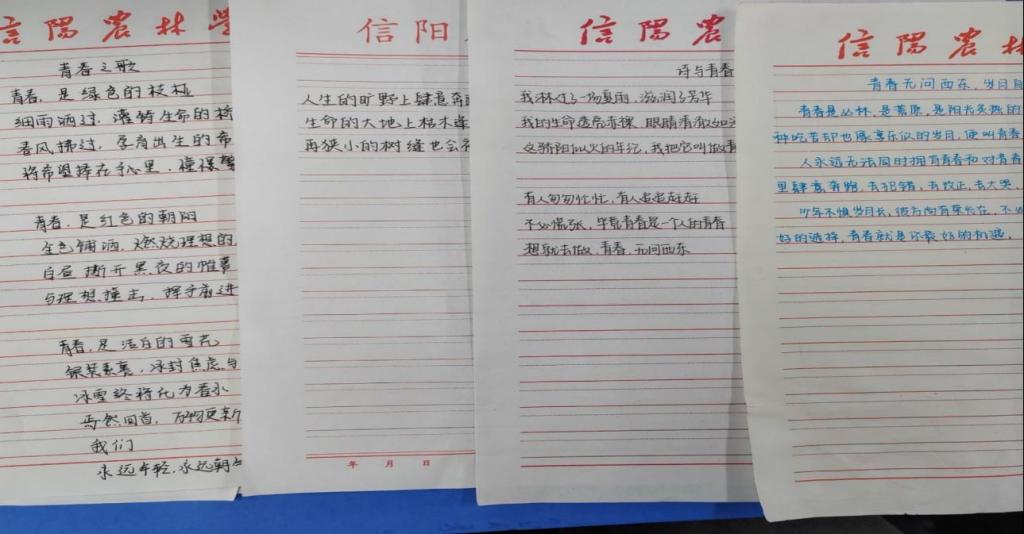 信阳农林学
青春之歌
青春，是绿色的枝桠
细雨洒过，灌铸生命的桥
春风拂过，孕育出生的希
将希望捧在手心里，憧憬
青春，是红色的朝阳
金色铺洒，燃烧理想的
白昼撕开黑夜的帷幕
与理想撞击，挥手前进
青春，是洁白的雪花
银装素裹，冰封焦虑与
冰雪终将化为春水
蓦然回首，万物更新
我们
永远年轻，永远朝
信阳
人生的旷野上肆意奔跑
生命的大地上枯木逢
再狭小的树缝也会
年 月 日
信阳农
诗与青春
我淋过一场夏雨，滋润了芳华
我的生命透亮赤裸，眼睛清澈如
这骄阳似火的年纪，我把它叫做青
有人匆匆忙忙，有人追追赶赶
不必慌张，毕竟青春是一个人的青春
想就去做，青春，无问西东
信阳农林
青春无问西东，岁月自
青春是丛林，是荒原，是阳光炙热的
种吃苦却也展享乐似的岁月，便叫青春
人永远无法同时拥有青春和对青春
里肆意奔跑，去犯错，去改正，去大哭，
少年不惧岁月长，彼方尚有荣光在，不必
好的选择，青春就是你最好的机遇。